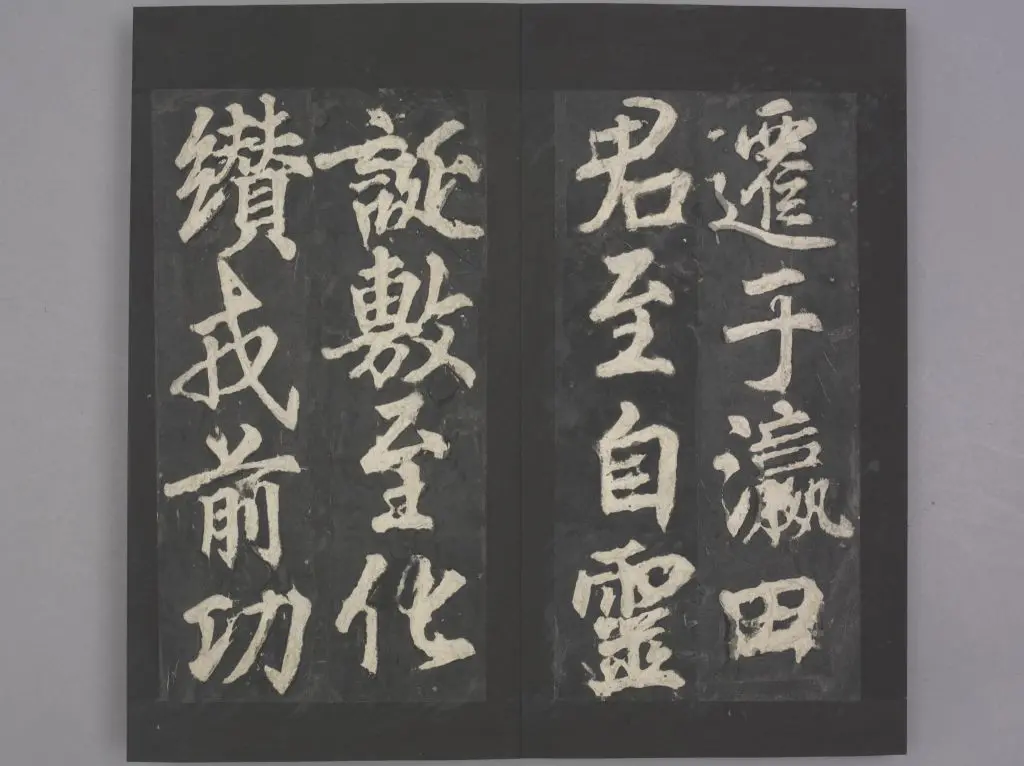 遷于瀛田
君至自靈
誕敷至化
纘戎前功